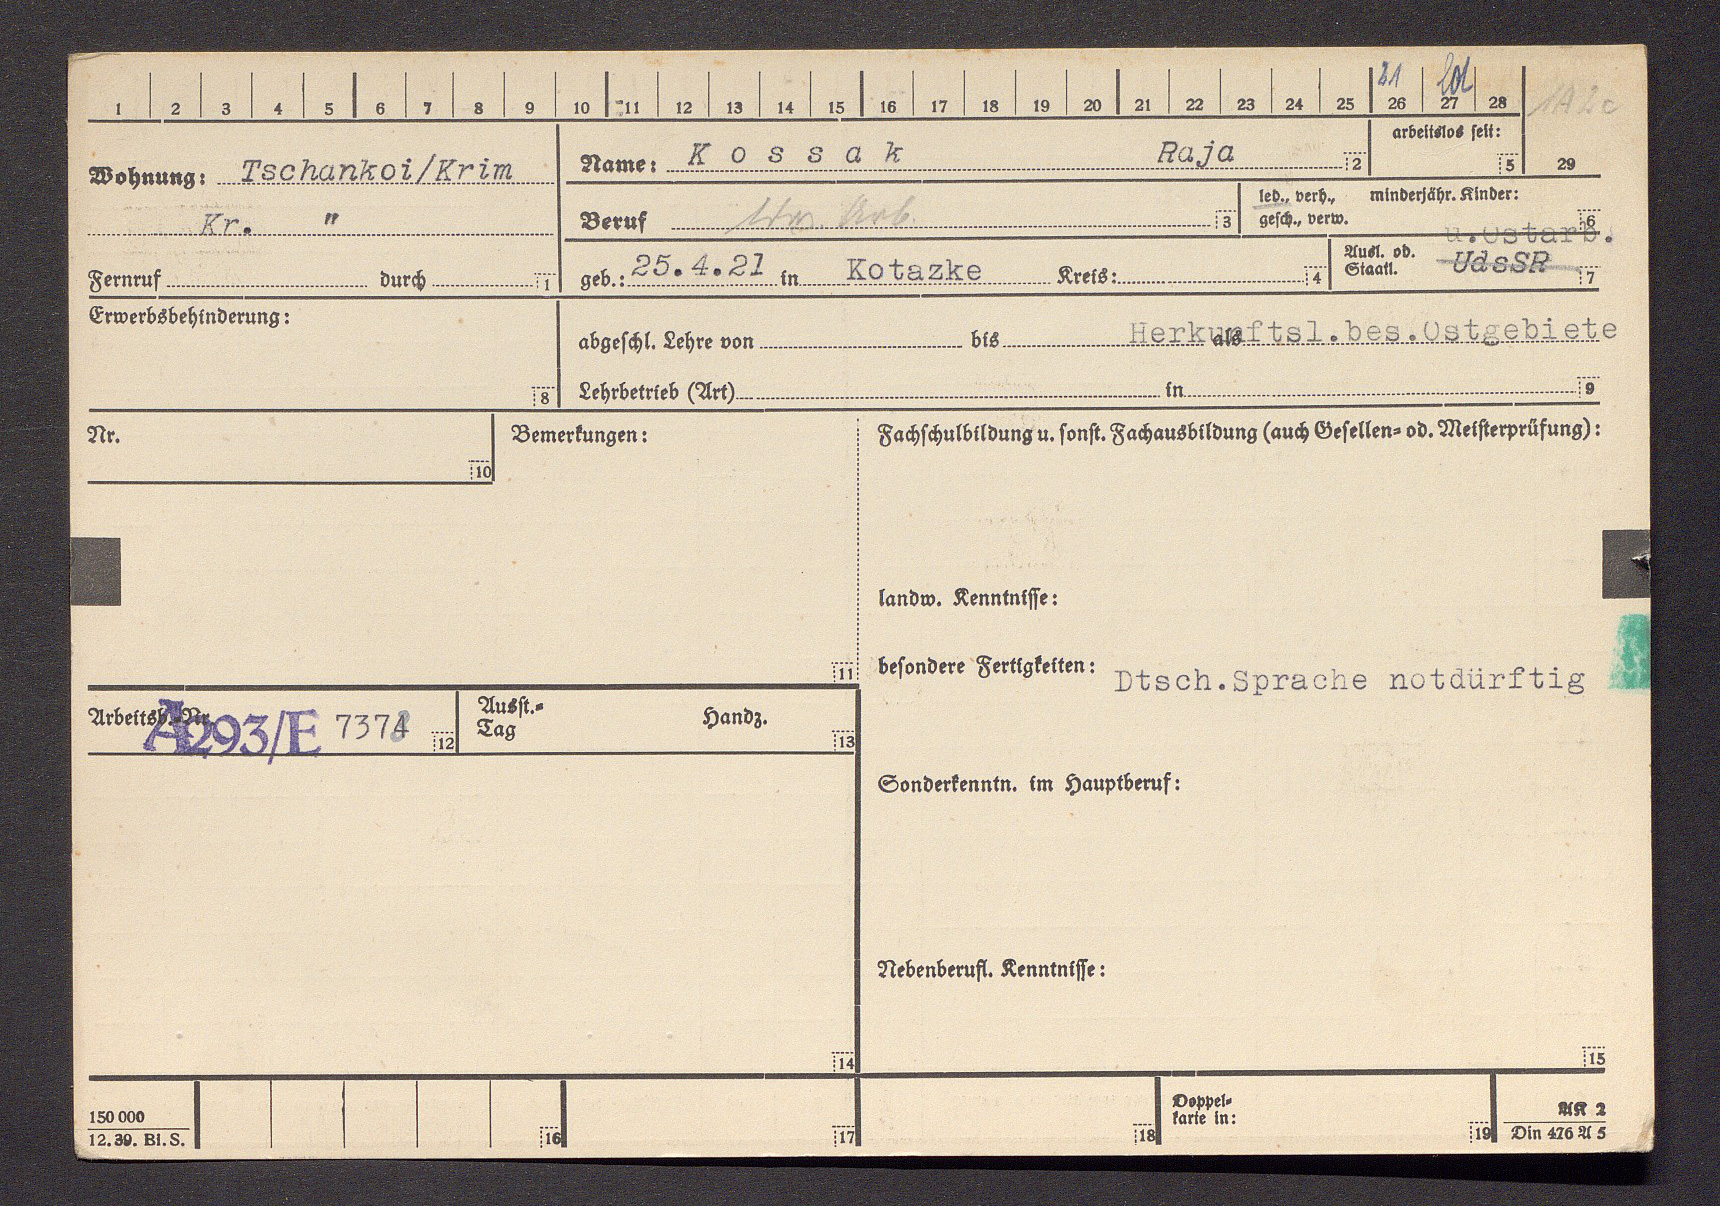 1 2 3 4 5 6 7 8 9 10 11 12 13 14 15 16 17 18 19 20 21 22 23 24 25 26 27 28
arbeitslos seit:
5 29
Wohnung: Tschankoi/Krim
Kr. "
Fernruf durch 1
Name: Kossak Raja 2
Beruf 3
led., verh., gesch., verw.
minderjähr. Kinder: 6
geb.: 25.4.21 in Kotazke Kreis: 4
u.Ostarb.
Ausl. od. Staatl. UdSSR 7
Erwerbsbehinderung: 8
Herkunftsl.bes.Ostgebiete
abgeschl. Lehre von bis als
Lehrbetrieb (Art) in 9
Nr. 10
Bemerkungen: 11
Fachschulbildung u. sonst. Fachausbildung (auch Gesellen- od. Meisterprüfung):
landw. Kenntnisse:
besondere Fertigkeiten: Dtsch.Sprache notdürftig
Arbeitsb.-Nr. A293/E 12
Ausst.-Tag Handz. 13
Sonderkenntn. im Hauptberuf:
Nebenberufl. Kenntnisse:
14 15
150 000
12. 39. Bl. S.
16 17 18
Doppel-
karte in: 19
AK 2
Din 476 A 5